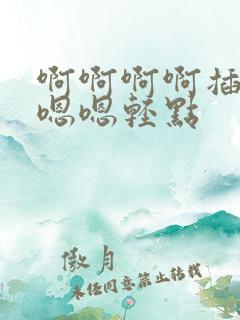 啊啊啊啊插
嗯嗯轻點
傲月
未任同意禁止转载